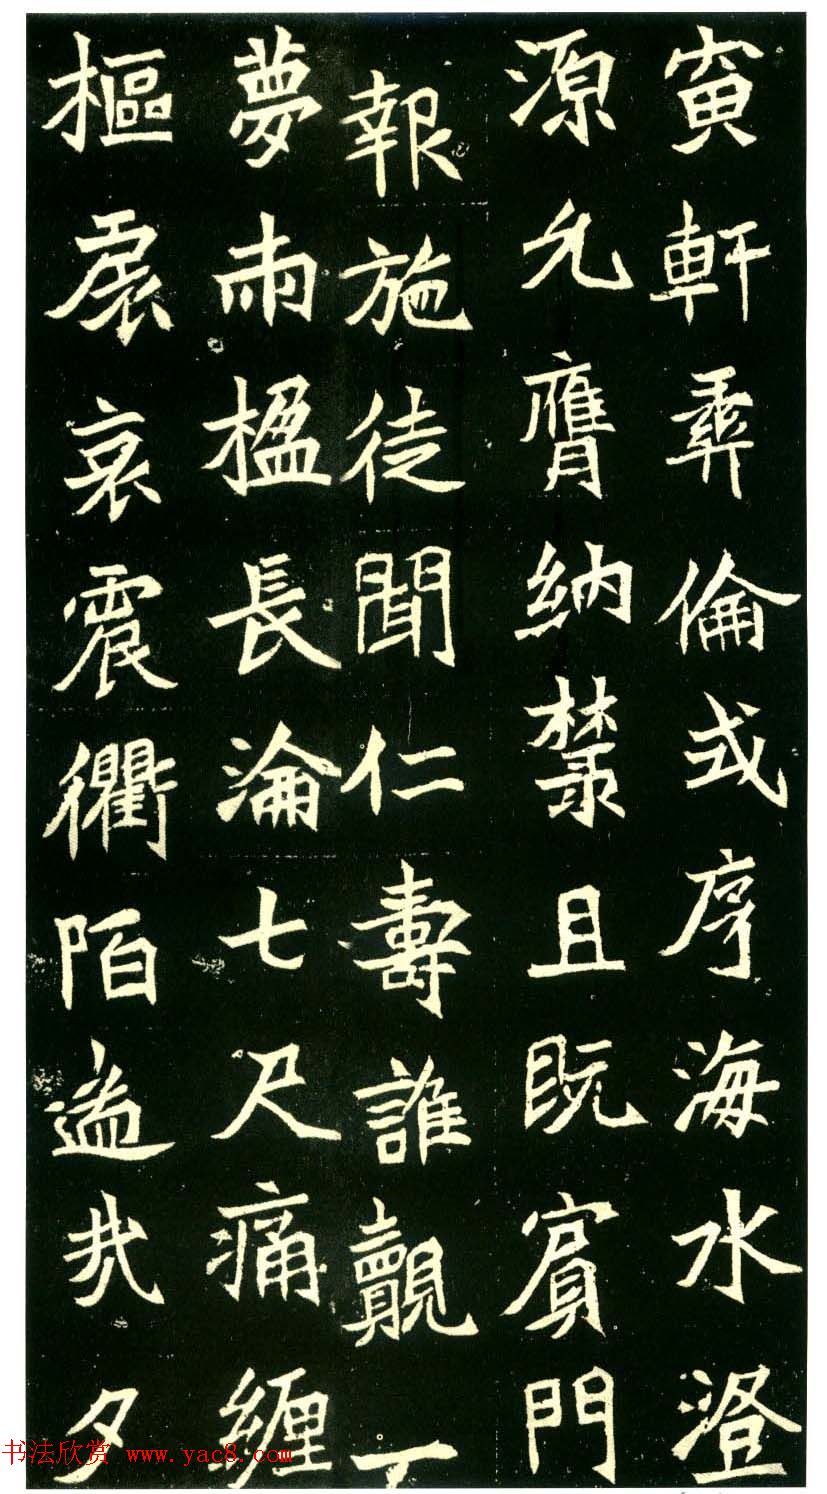 寅軒彝倫式序海水澄
源允膺納麓且既賓門
報施徒聞仁壽誰覿一
夢兩楹長淪七尺痛纏
樞扆哀震衢陌遄兆夕
书法欣赏 www.yac8.com